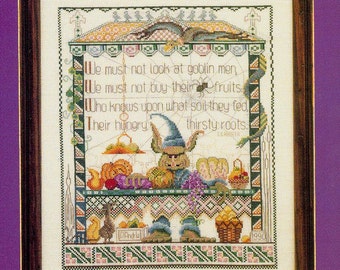 We must not look at goblin men,
We must not buy their fruits.
Who knows upon what soil they fed
Their hungry thirsty roots.